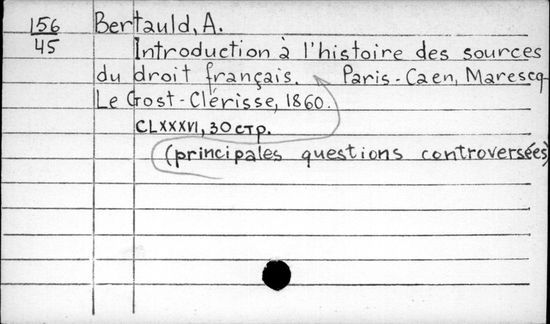 156
45
Bertauld, A.
Introduction à l'histoire des sources
du droit français. Paris-Caen, Marescq
Le Gost-Clérisse, 1860.
CLXXXVI, 30 стр.
(principales questions controversées)